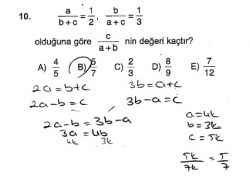 10. a/b+c = 1/2 , b/a+c = 1/3
olduğuna göre c/a+b nin değeri kaçtır?
A) 4/5 B) 5/7 C) 2/3 D) 8/9 E) 7/12
2a = b+c 3b = a+c
2a-b = c 3b-a = c
2a-b = 3b-a
3a = 4b
4k 3k
a=4k
b=3k
c=5k
5k/7k = 5/7